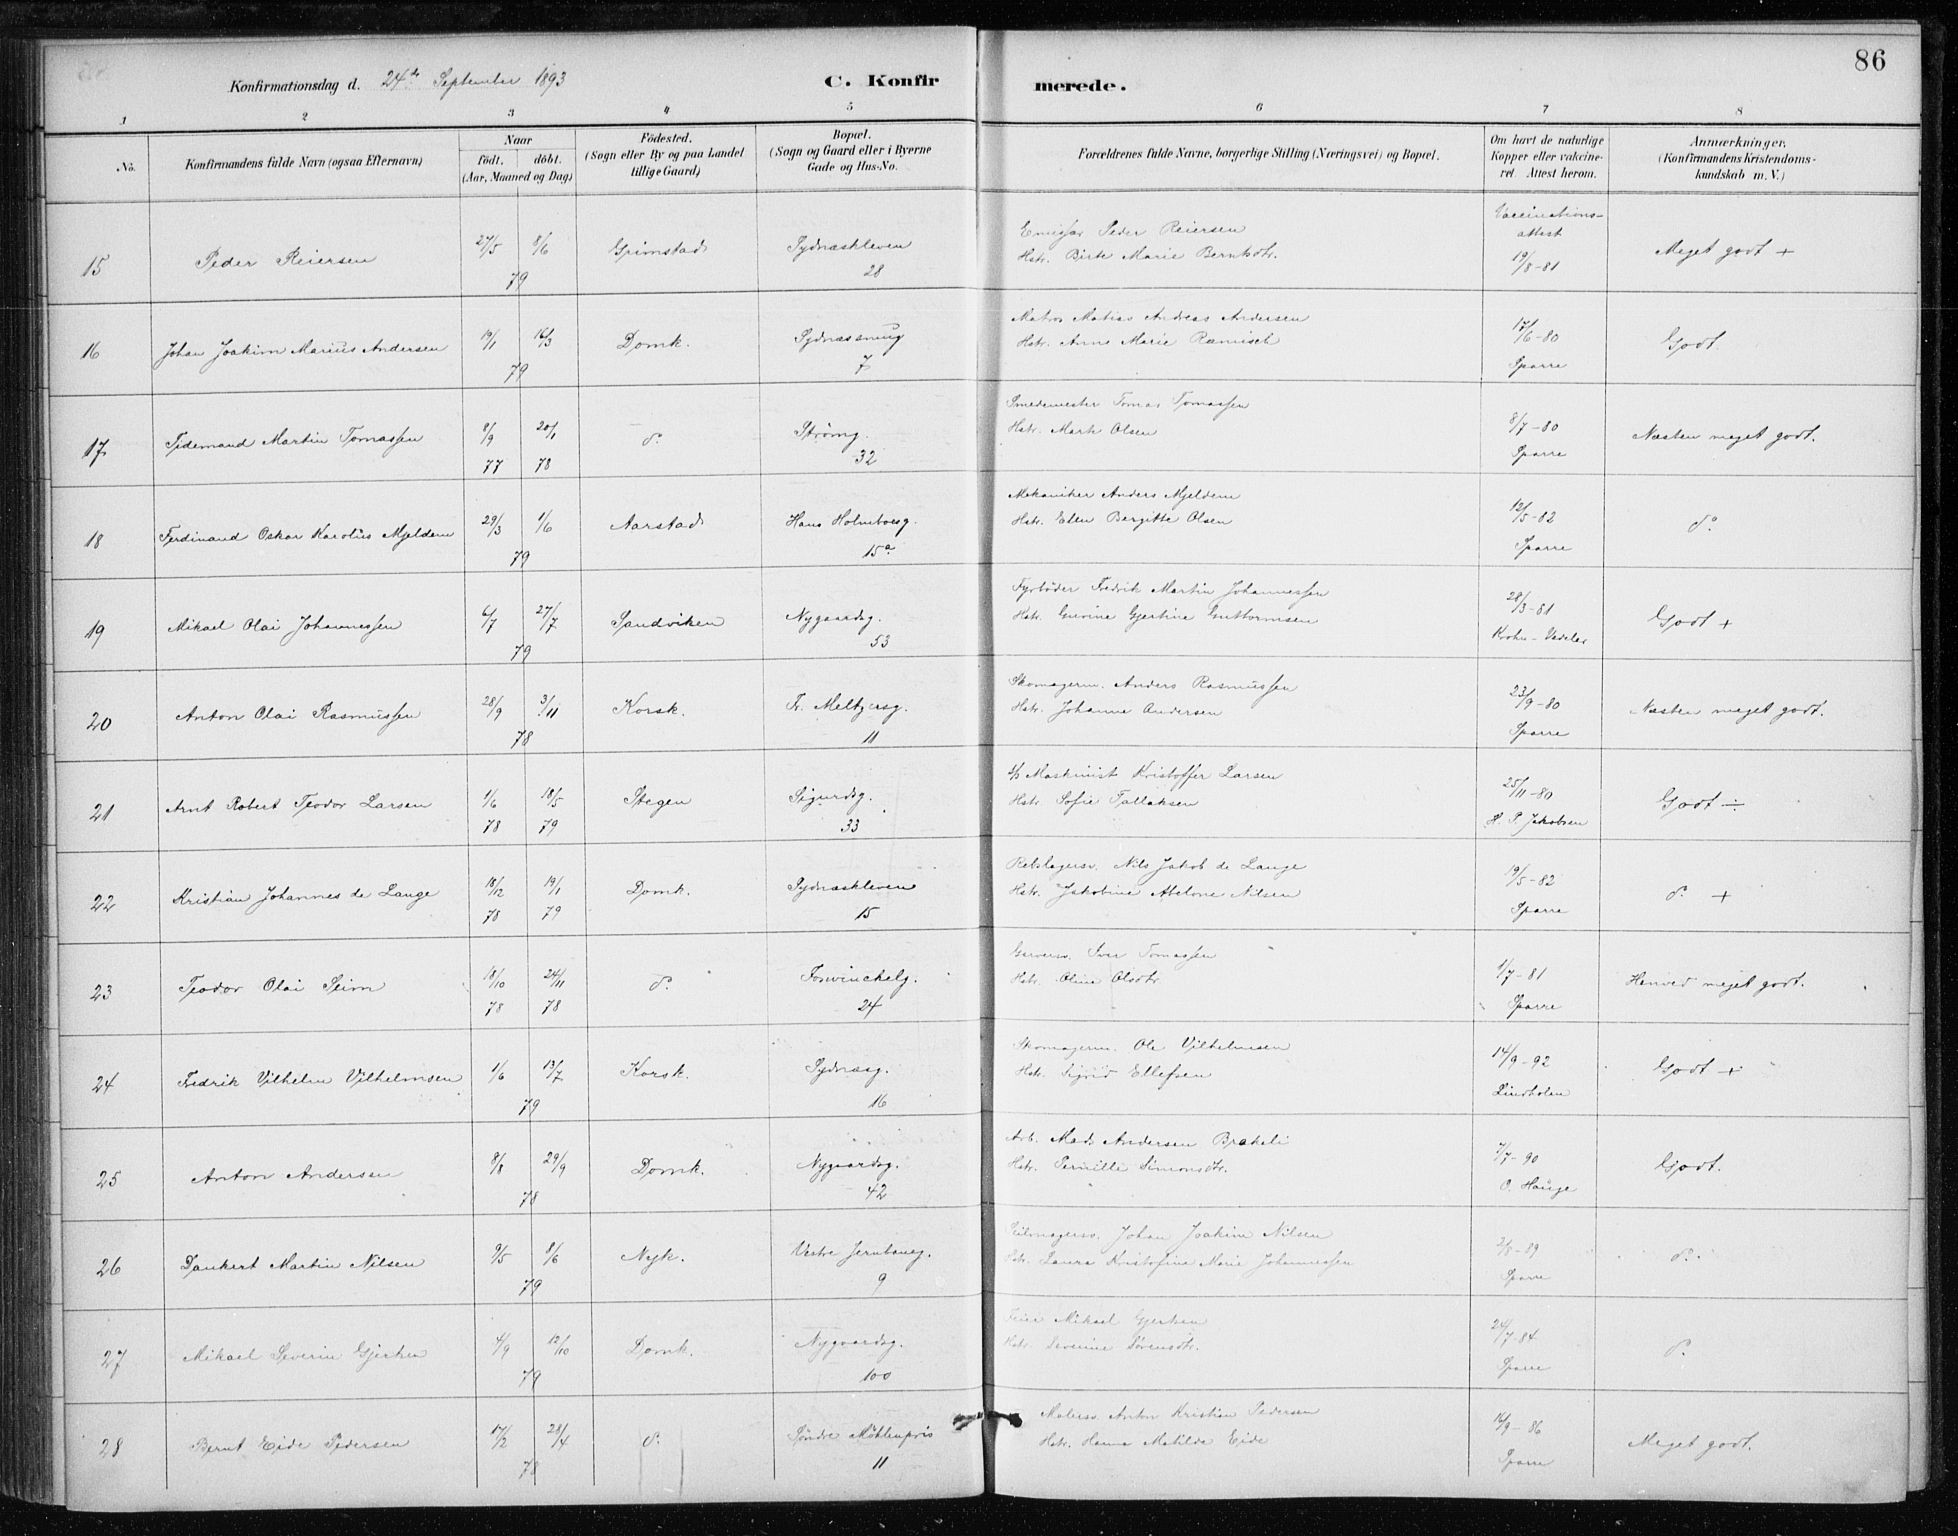 86
Konfirmationsdag d. 24de September 1893 C. Konfirmerede.
1 2 3 4 5 6 7 8
No. Konfirmandens fulde Navn (ogsaa Efternavn) Naar født. døbt. (Aar, Maaned og Dag) Fødested. (Sogn eller By og paa Landet tillige Gaard) Bopæl. (Sogn og Gaard eller i Byerne Gade og Hus-No. Forældrenes fulde Navne, borgerlige Stilling (Næringsvei) og Bopæl. Om havt de naturlige Kopper eller vakcineret. Attest herom. Anmærkninger. (Konfirmandens Kristendomskundskab m. V.)
15 Peder Reiersen 27/5 8/6 79 Grimstad Sydnæskleven 28 Emissær Peder Reiersen Hstr. Birte Marie Berntsdtr. Vaccinationsattest 19/8-81 Meget godt +
16 Johan Joakim Marius Andersen 19/1 16/3 79 Domk. Sydnæssmug 7 Matros Matias Andreas Andersen Hstr. Anne Marie Ramisch 17/6-80 Sparre Godt.
17 Tidemand Martin Tomassen 8/9 77 20/1 78 do. Strømg. 32 Smedemester Tomas Tomassen Hstr. Marte Olsen 8/7-80 Sparre Næsten meget godt.
18 Ferdinand Oskar Karolius Mjeldem 29/3 1/6 79 Aarstad Hans Holmboesg. 15a Mekaniker Anders Mjeldem Hstr. Elen Bergitte Olsen 12/5-82 Sparre do
19 Mikael Olai Johannessen 6/7 27/7 79 Sandviken Nygaardsg. 53 Fyrbøder Fredrik Martin Johannessen Hstr. Gurine Gjertine Guttormsen 28/3-81 Krohn-Vedeler Godt +
20 Anton Olai Rasmussen 28/9 3/11 78 Korsk. Fr. Meltzersg. 11 Skomagerm. Anders Rasmussen Hstr. Johanna Andersen 23/9-80 Sparre Næsten meget godt.
21 Arnt Robert Teodor Larsen 1/6 78 18/5 79 Stegen Sigurdsg. 33 Maskinist Kristoffer Larsen Hstr. Sofie Tallaksen 25/11-80 H. P. Jakobsen Godt ÷
22 Kristian Johannes de Lange 18/12 78 19/1 79 Domk. Sydnæskleven 15 Rebslagersv. Nils Jakob de Lange Hstr. Jakobine Abelone Nilsen 19/5-82 Sparre do. +
23 Teodor Olai Seim 18/10 78 24/11 78 do. Forvinchelg. 24 Garversv. Iver Tomassen Hstr. Oline Olsdtr 1/7-81 Sparre Henved meget godt.
24 Fredrik Vilhelm Vilhelmsen 1/6 13/7 79 Korsk. Sydnæsg. 16 Skomagerm. Ole Vilhelmsen Hstr. Sigrid Ellefsen 14/9-92 Lindholm Godt +
25 Anton Andersen 8/8 29/9 78 Domk. Nygaardsg. 42 Arb. Mads Andersen Brakeli Hstr. Pernille Simonsdtr. 7/7-90 O. Hauge Godt.
26 Dankert Martin Nilsen 9/5 8/6 79 Nyk. Vestre Jernbaneg. 9 Seilmagersv. Johan Joakim Nilsen Hstr. Laura Kristofine Marie Johannessen 2/8-89 Sparre do.
27 Mikael Severin Gjertsen 4/9 12/10 79 Domk. Nygaardsg. 100 Feier Mikael Gjertsen Hstr. Severine Sørensdtr. 24/7-84 Sparre do.
28 Bernt Eide Pedersen 17/2 28/4 78 do. Søndre Møhlenpris 11 Malersv. Anton Kristian Pedersen Hstr. Hanna Matilde Eide 16/9-86 Sparre Meget godt.